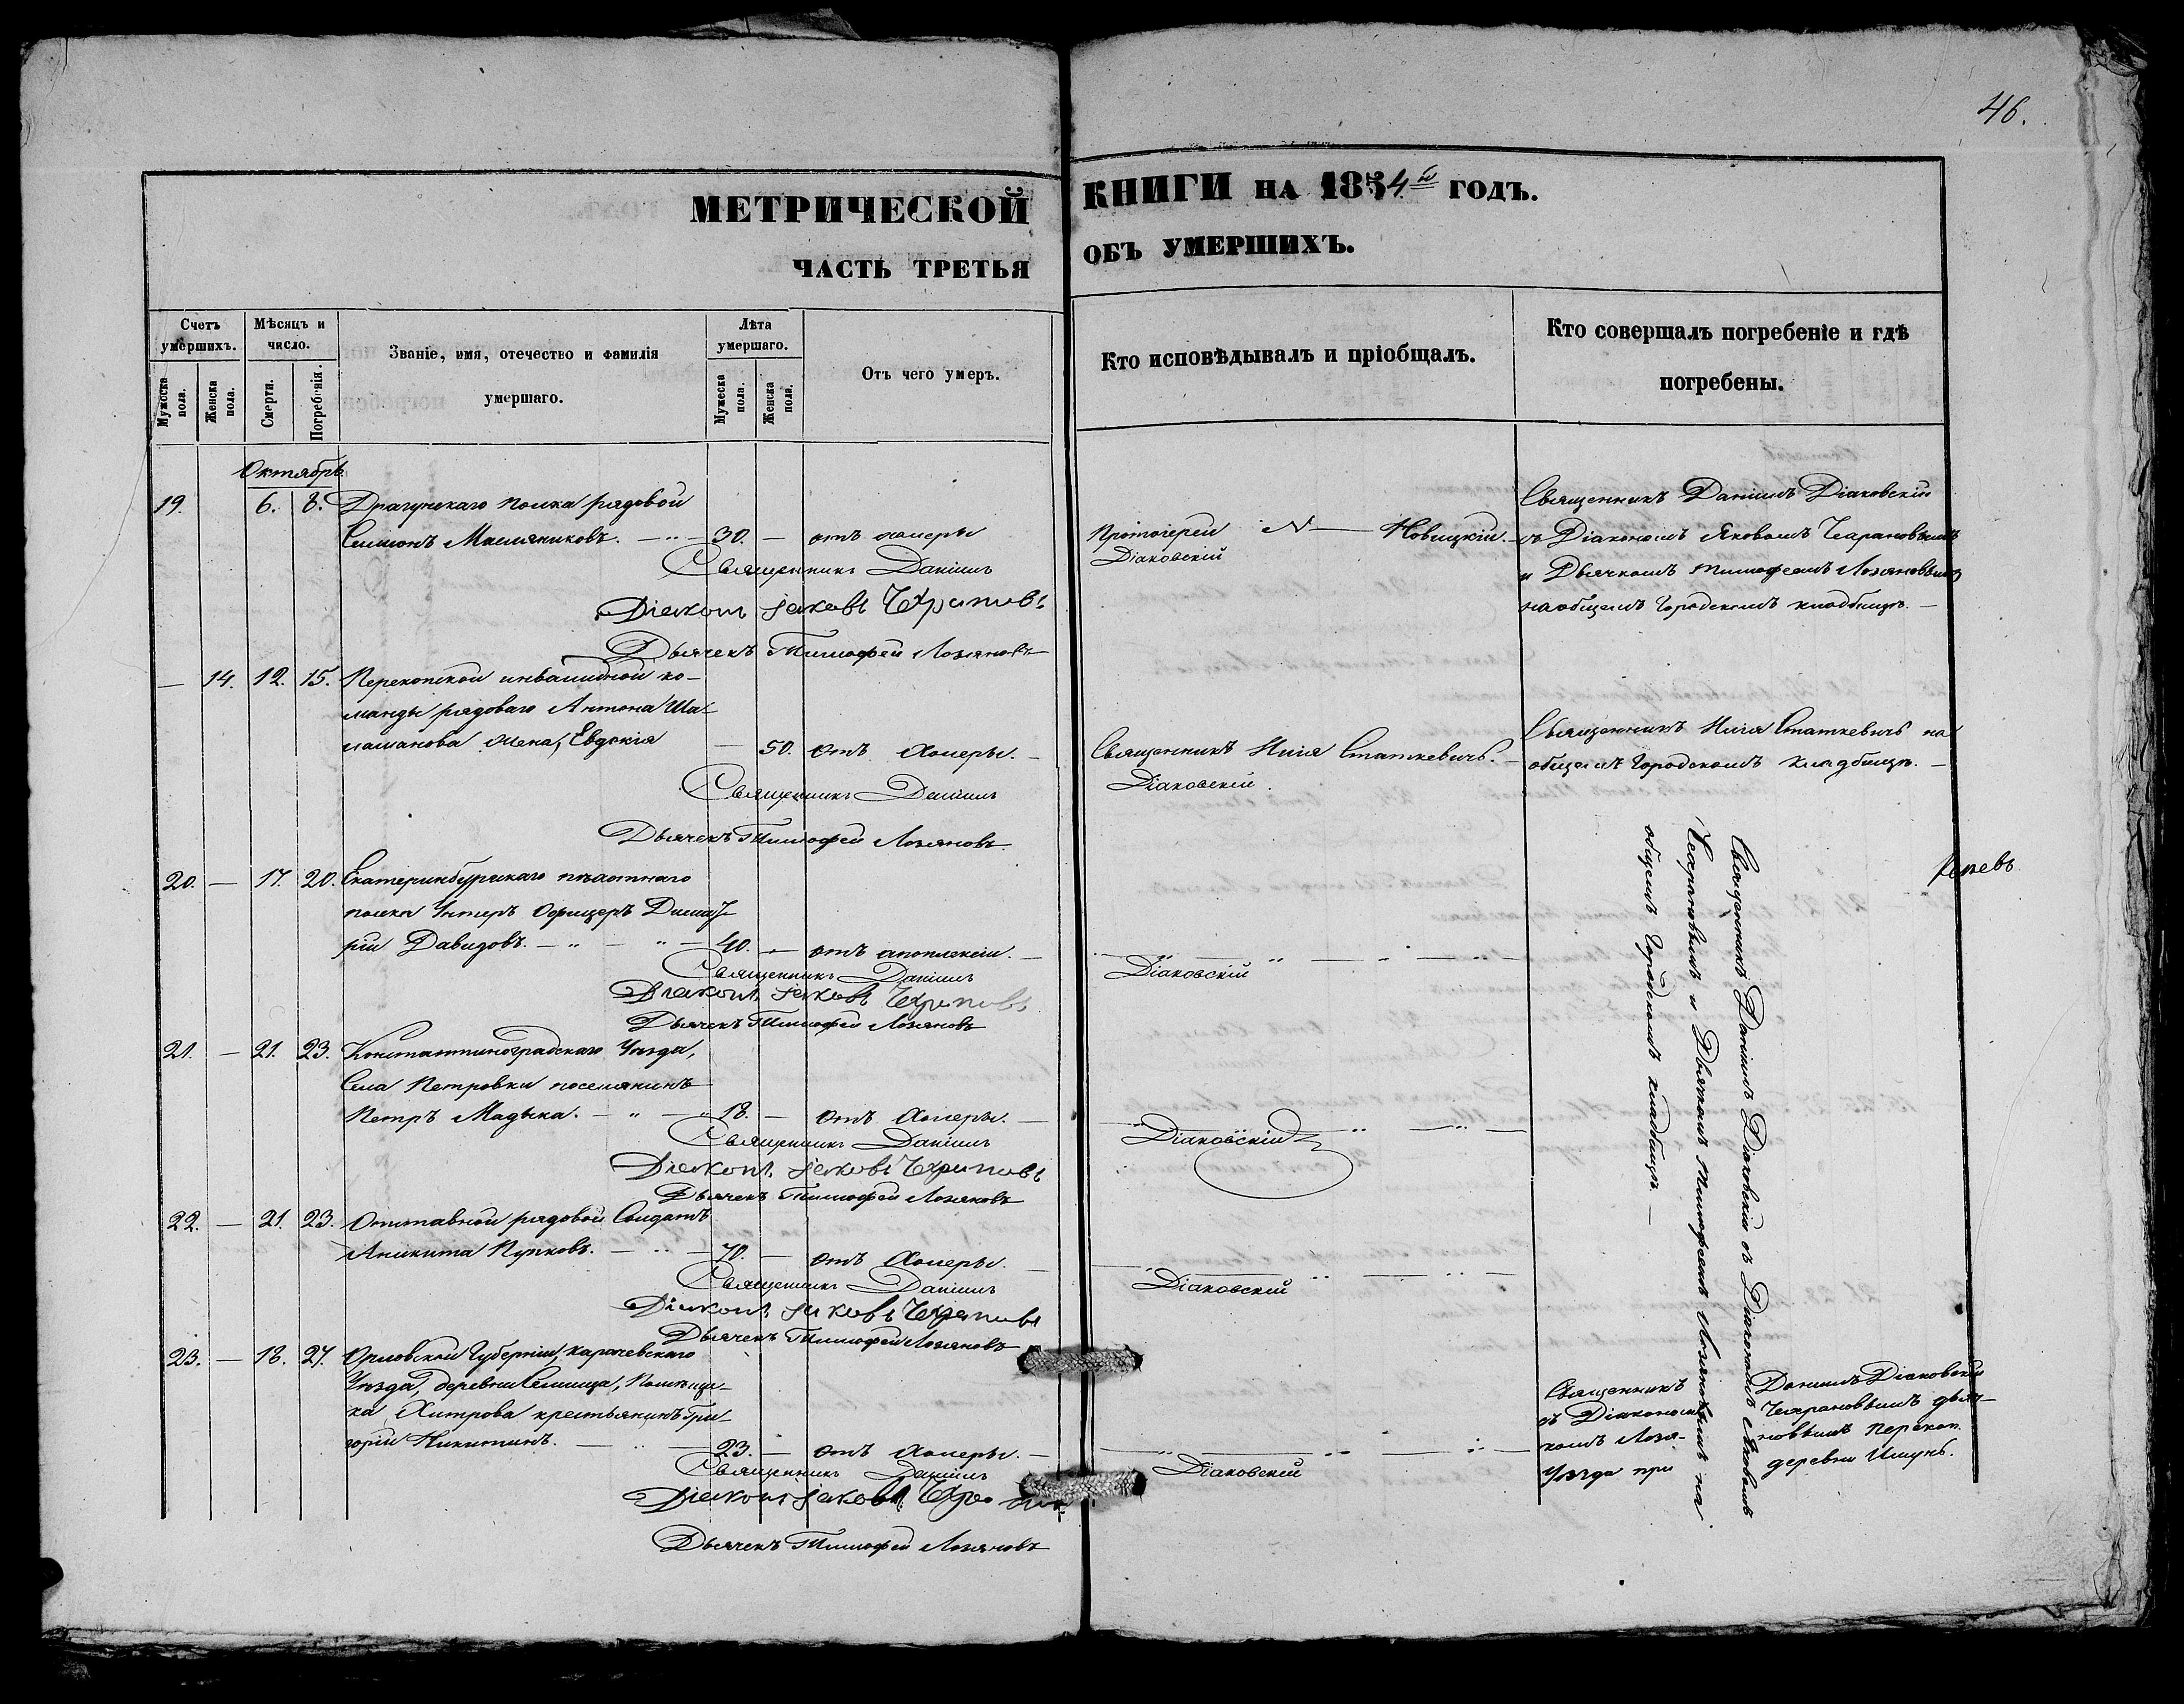 46.
МЕТРИЧЕСКОЙ КНИГИ НА 1854й ГОДЪ.
ЧАСТЬ ТРЕТЬЯ ОБЪ УМЕРШИХЪ.
Счетъ умершихъ.
Мужеска пола.
Женска пола.
Мѣсяцъ и число.
Смерти.
Погребенія.
Званіе, имя, отечество и фамилія умершаго.
Лѣта умершаго.
Мужеска пола.
Женска пола.
Отъ чего умеръ.
Кто исповѣдывалъ и пріобщалъ.
Кто совершалъ погребеніе и гдѣ погребены.
Октябрь
19. 6. 8. Драгунскаго полка рядовой
Симіонъ Масляниковъ. 30. — отъ холеры
Протоіерей Новицкій.
Священникъ Даніилъ Діаковскій
съ Діакономъ Яковомъ
и Дьячкомъ Тимофеемъ Лозяновымъ
на общемъ Городскомъ кладбищѣ. —
Священникъ Даніилъ Діаковскій
Діаконъ Іаковъ
Дьячекъ Тимофей Лозяновъ
— 14. 12. 15. Перекопской инвалидной ко-
манды рядоваго Антона
жена, Евдокія — 50. отъ Холеры. —
Священникъ Илія Статкевичъ. —
Священникъ Илія Статкевичъ на
общемъ Городскомъ кладбищѣ. —
Священникъ Даніилъ Діаковскій.
Дьячекъ Тимофей Лозяновъ.
20. — 17. 20. Екатеринбургскаго пѣхотнаго
полка Унтеръ Офицеръ
Давидовъ. — 40. — отъ апоплексіи. —
Священникъ Даніилъ Діаковскій
Діаконъ Іаковъ
Дьячекъ Тимофей Лозяновъ
21. — 21. 23. Константиноградскаго Уѣзда,
Села Петровки поселянинъ
Петръ Мадыка. — 18. — отъ Холеры. —
Священникъ Даніилъ Діаковскій
Діаконъ Іаковъ
Дьячекъ Тимофей Лозяновъ
22. — 21. 23. Отставной рядовой Солдатъ
Аникита Пупковъ. — 70. — отъ Холеры. —
Священникъ Даніилъ Діаковскій
Діаконъ Іаковъ
Дьячекъ Тимофей Лозяновъ
Священникъ Даніилъ Діаковскій съ Діакономъ Яковомъ
и Дьячкомъ Тимофеемъ Лозяновымъ на
общемъ Городскомъ кладбищѣ. —
23. — 18. 27. Орловской Губерніи, Карачевскаго
Уѣзда, деревни Помѣщи-
ка Хитрова крестьянинъ Гри-
горій Никитинъ. — 23. — отъ Холеры. —
Священникъ Даніилъ Діаковскій
съ Діакономъ дьяч-
комъ Лозя- новымъ Перекоп.
Уѣзда при деревни Ишунь.
Священникъ Даніилъ Діаковскій
Діаконъ Іаковъ
Дьячекъ Тимофей Лозяновъ